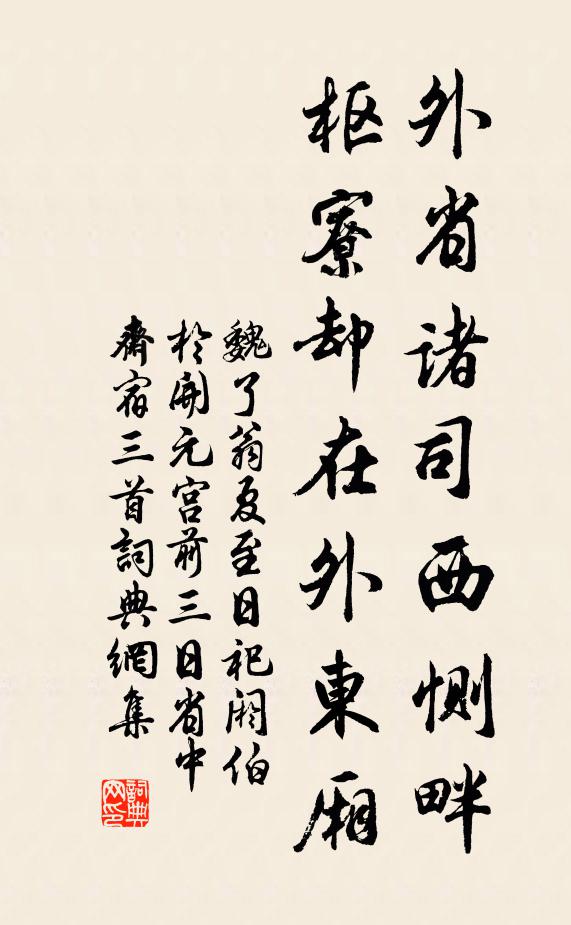 外省諸司西惻畔
枢寮却在外東厢
魏了翁夏至日祀阏伯
於開元宫前三日省中
齋宿三首詞典網集
詞典网印